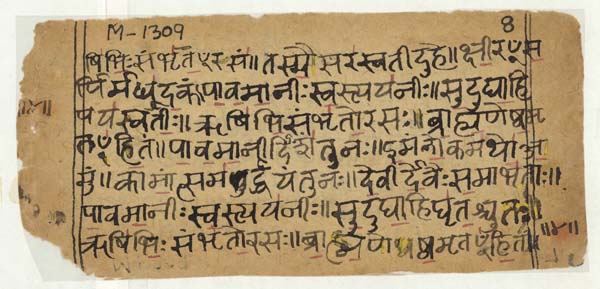 M-1309
8
षिभिः संभृतꣳरसं॥ तस्मै सरस्वती दुहे॥ क्षीरꣳस
र्पिर्मधूदकं॥ पावमानीः स्वस्त्ययनीः॥ सुदुघाहि
पयस्वतीः॥ ऋषिभिः संभृतो रसः॥ ब्राह्मणेष्वमृ
तꣳहितं॥ पावमानीर्दिशंतु नः॥ इमं लोकमथो अ
मुं॥ कामांत्समर्द्धयंतु नः॥ देवीर्देवैः समाभृताः॥
पावमानीः स्वस्त्ययनीः॥ सुदुघाहि घृतश्चुतः॥
ऋषिभिः संभृतो रसः॥ ब्राह्मणेष्वमृतꣳहितं॥